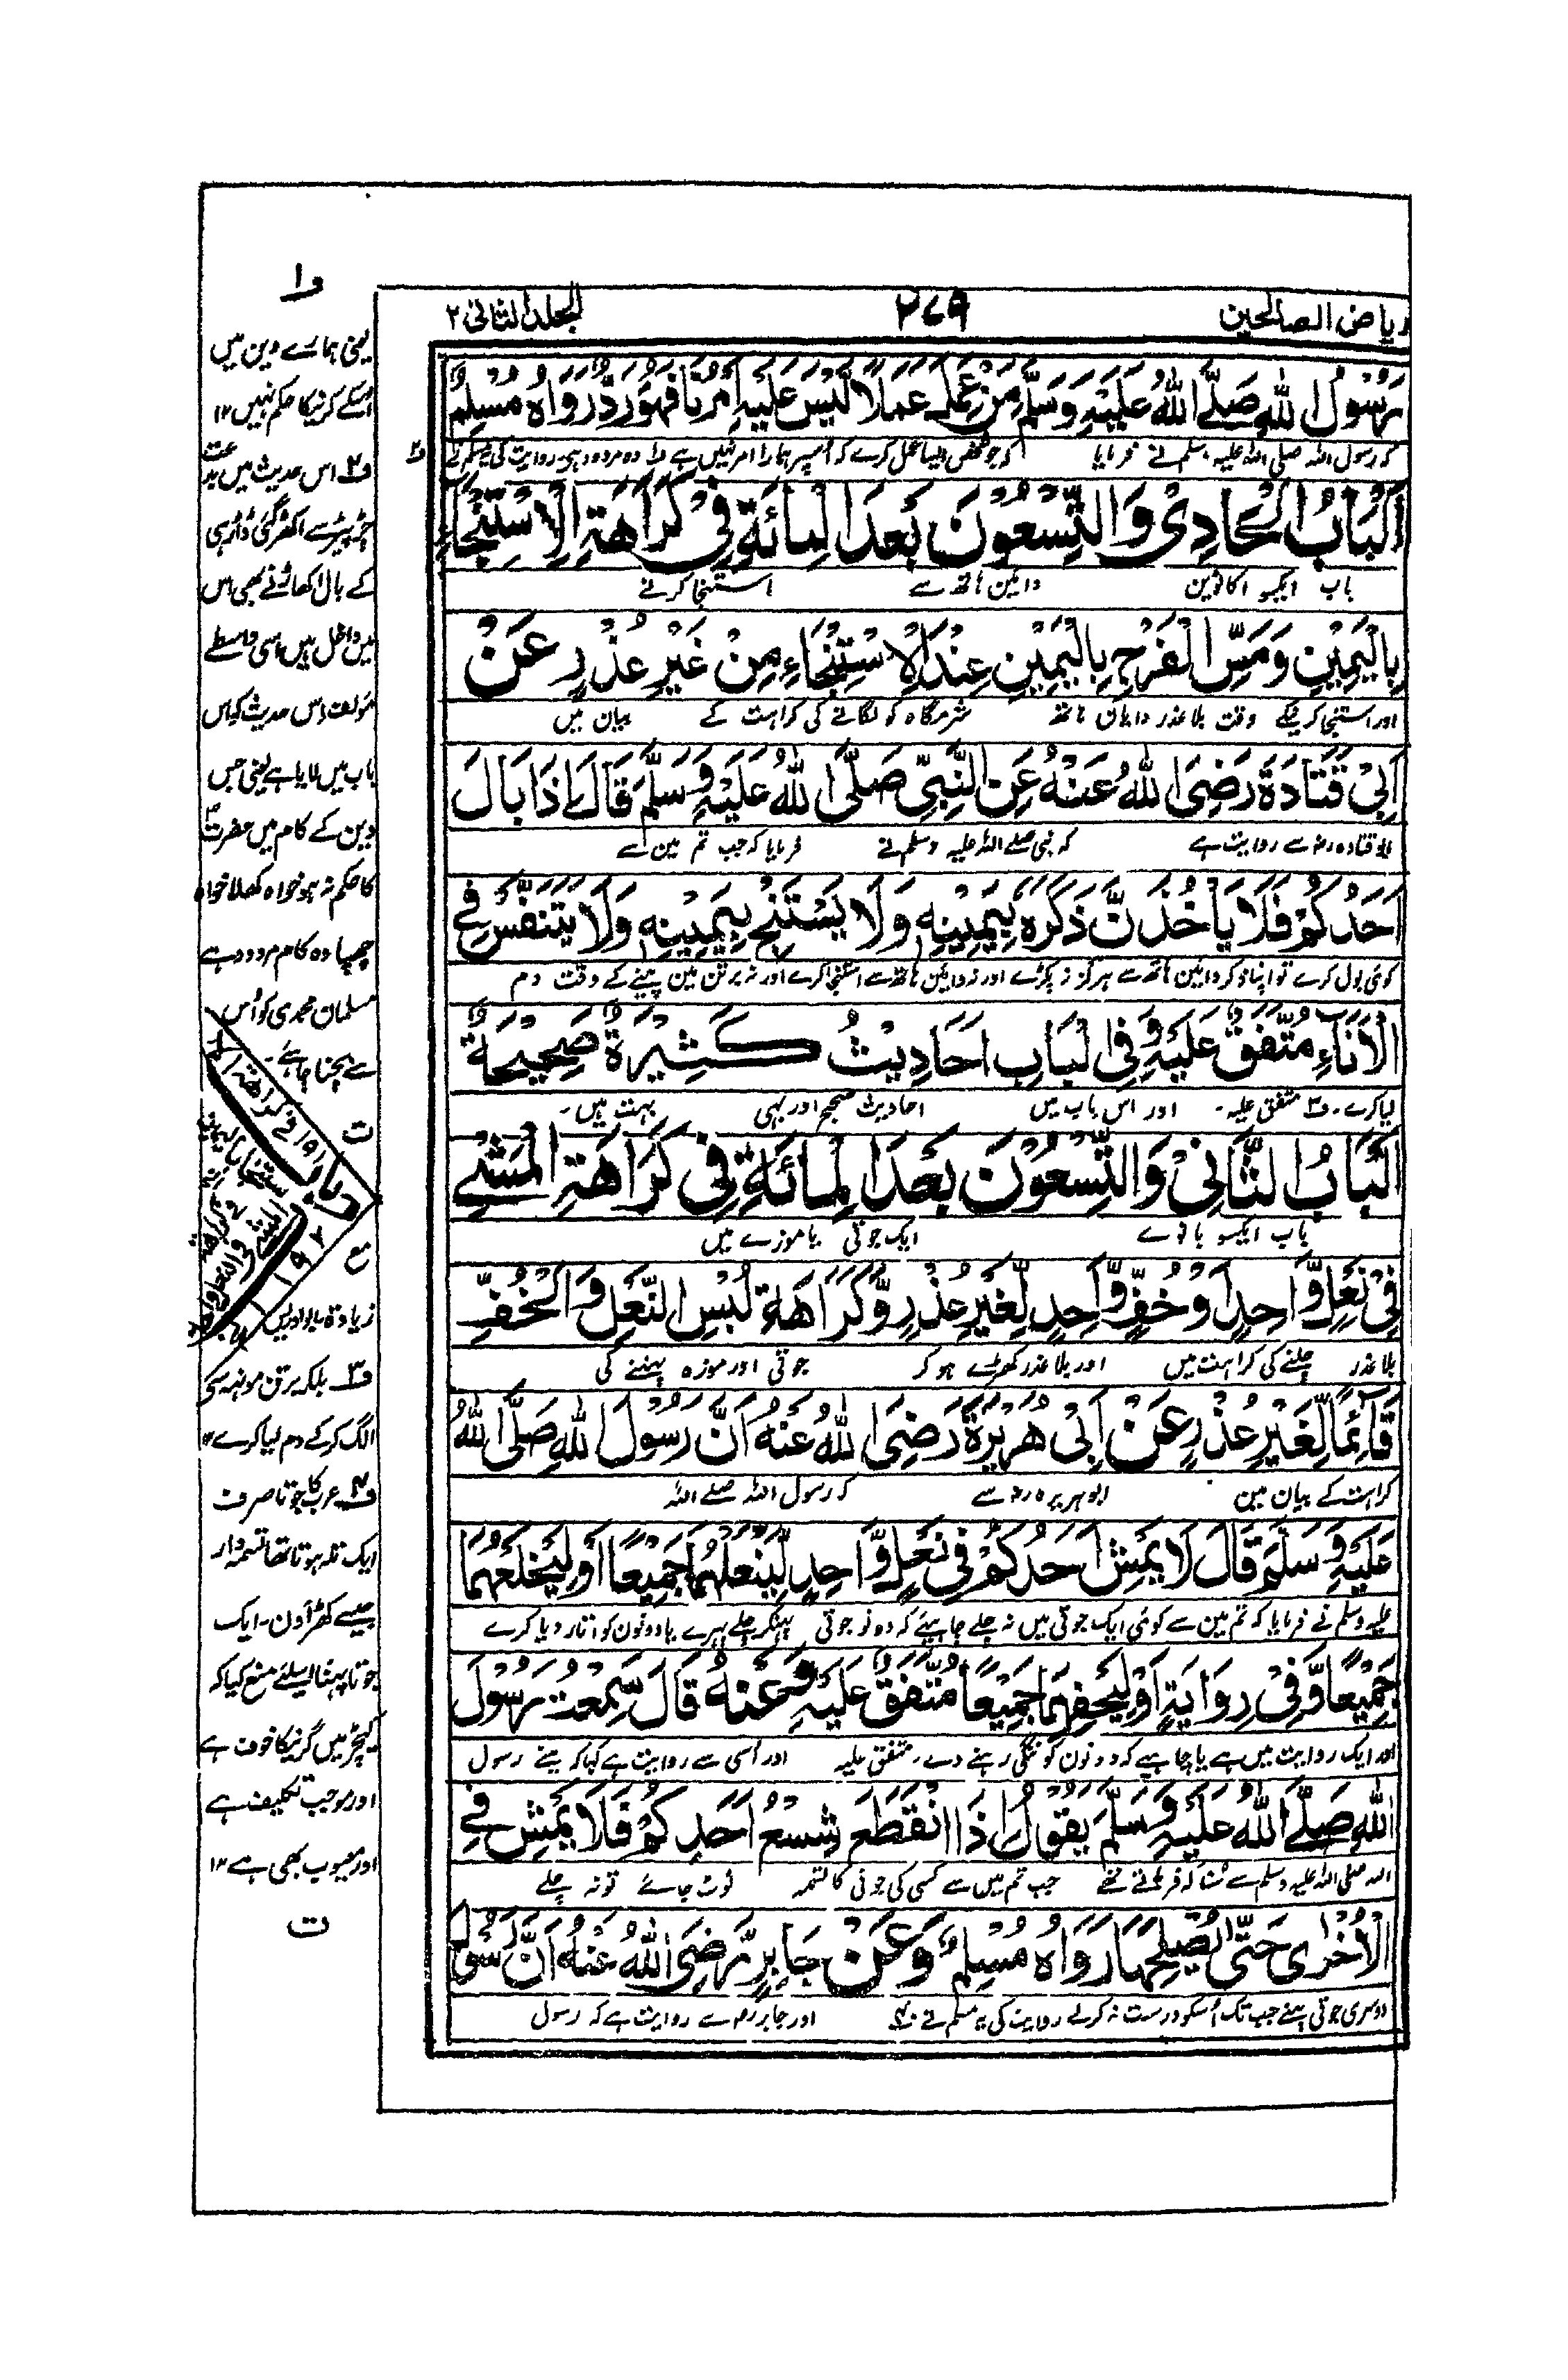 ریاض الصالحین ۲۷۹ الجلد الثانی ۲
رَسُولَ اللهِ صَلَّى اللهُ عَلَيْهِ وَسَلَّمَ مَنْ عَمِلَ عَمَلًا لَيْسَ عَلَيْهِ اَمْرُنَا فَهُوَ رَدٌّ رَوَاهُ مُسْلِمٌ
کہ رسول اللہ صلی اللہ علیہ وسلم نے فرمایا کہ جو شخص ایسا عمل کرے کہ اُسپر ہمارا امر نہیں ہے ف۱ وہ مردود ہی۔ روایت کی یہ مسلم نے ف۲
اَلْبَابُ الْحَادِيْ وَالتِّسْعُوْنَ بَعْدَ الْمِائَةِ فِيْ كَرَاهَةِ الْاِسْتِنْجَاءِ
باب ایکسو اکانوین دائین ہاتھ سے استنجا کرنے
بِالْيَمِيْنِ وَمَسِّ الْفَرْجِ بِالْيَمِيْنِ عِنْدَ الْاِسْتِنْجَاءِ مِنْ غَيْرِ عُذْرٍ عَنْ
اور استنجا کرنیکے وقت بلا عذر داہان ہاتھ شرمگاہ کو لگانے کی کراہت کے بیان میں
اَبِيْ قَتَادَةَ رَضِيَ اللهُ عَنْهُ عَنِ النَّبِيِّ صَلَّى اللهُ عَلَيْهِ وَسَلَّمَ قَالَ اِذَا بَالَ
ابو قتادہ رض سے روایت ہے کہ نبی صلے اللہ علیہ وسلم نے فرمایا کہ جب تم مین سے
اَحَدُكُمْ فَلَا يَأْخُذَنَّ ذَكَرَهٗ بِيَمِيْنِهٖ وَلَا يَسْتَنْجِ بِيَمِيْنِهٖ وَلَا يَتَنَفَّسْ فِي
کوئی بول کرے تو اپنا ذکر دائین ہاتھ سے ہرگز نہ پکڑے اور نہ دائین ہاتھ سے استنجا کرے اور نہ برتن مین پینے کے وقت دم
الْاِنَاءِ مُتَّفَقٌ عَلَيْهِ وَفِي الْبَابِ اَحَادِيْثُ كَثِيْرَةٌ صَحِيْحَةٌ
لیا کرے۔ ف۳ متفق علیہ۔ اور اس باب میں احادیث صحیح اور بہی بہت ہیں۔
اَلْبَابُ الثَّانِيْ وَالتِّسْعُوْنَ بَعْدَ الْمِائَةِ فِيْ كَرَاهَةِ الْمَشْيِ
باب ایکسو بانوے ایک جوتی یا موزے میں
فِيْ نَعْلٍ وَّاحِدٍ اَوْ خُفٍّ وَّاحِدٍ لِغَيْرِ عُذْرٍ وَّكَرَاهَةِ لُبْسِ النَّعْلِ وَالْخُفِّ
بلا عذر چلنے کی کراہت میں اور بلا عذر کھڑے ہو کر جوتی اور موزہ پہننے کی
قَائِمًا لِغَيْرِ عُذْرٍ عَنْ اَبِيْ هُرَيْرَةَ رَضِيَ اللهُ عَنْهُ اَنَّ رَسُوْلَ اللهِ صَلَّى اللهُ
کراہت کے بیان مین ابو ہریرہ رض سے کہ رسول اللہ صلے اللہ
عَلَيْهِ وَسَلَّمَ قَالَ لَا يَمْشِ اَحَدُكُمْ فِيْ نَعْلٍ وَّاحِدٍ لِيَنْعَلْهُمَا جَمِيْعًا اَوْ لِيَخْلَعْهُمَا
علیہ وسلم نے فرمایا کہ تم مین سے کوئی ایک جوتی میں نہ چلے چاہیئے کہ دونو جوتی پہنکر چلے پہرے یا دونوں کو اتار دیا کرے
جَمِيْعًا وَّفِيْ رِوَايَةٍ اَوْ لِيُحْفِهِمَا جَمِيْعًا مُتَّفَقٌ عَلَيْهِ وَعَنْهُ قَالَ سَمِعْتُ رَسُوْلَ
اور ایک روایت میں ہے یا چاہیے کہ دونون کو ننگی رہنے دے۔ متفق علیہ اور اُسی سے روایت ہے کہا کہ مینے رسول
اللهِ صَلَّى اللهُ عَلَيْهِ وَسَلَّمَ يَقُوْلُ اِذَا انْقَطَعَ شِسْعُ اَحَدِكُمْ فَلَا يَمْشِ فِي
اللہ صلی اللہ علیہ وسلم سے سُنا کہ فرماتے تھے جب تم میں سے کسی کی جوتی کا تسمہ ٹوٹ جائے تو نہ چلے
الْاُخْرٰى حَتّٰى يُصْلِحَهَا رَوَاهُ مُسْلِمٌ وَعَنْ جَابِرٍ رَّضِيَ اللهُ عَنْهُ اَنَّ رَسُوْلَ
دوسری جوتی پہنے جب تک اُسکو درست نہ کرلے روایت کی یہ مسلم نے ف۴ اور جابر رض سے روایت ہے کہ رسول
ف۱
یعنی ہمارے دین میں
اُسکے کرنیکا حکم نہیں ۱۲
ف۲ اس حدیث میں بدعت
جڑ پیڑ سے اکھڑ گئی ڈاڑہی
کے بال اکھاڑنے بھی اس
میں داخل ہیں اسی واسطے
مؤلف اس حدیث کو اس
باب میں لایا ہے یعنی جس
دین کے کام میں حضرت
کا حکم نہ ہو خواہ کھلا خواہ
چھپا وہ کام مردود ہے
مسلمان محمدی کو اُس
سے بچنا چاہئے۔
ت
ف۳ بلکہ برتن مونہہ سی
الگ کر کے دم لیا کرے ۱۲
ف۴ عرب کا جوتا صرف
ایک تلہ ہوتا تھا تسمہ دار
جیسے کھڑاون۔ ایک
جوتا پہننا اسلئے منع کیا کہ
کیچڑ میں گرنیکا خوف ہے
اور موجب تکلیف ہے
اور معیوب بھی ہے ۱۲
ت